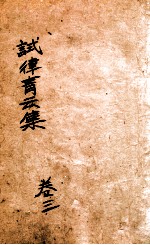 試律青雲集
卷三